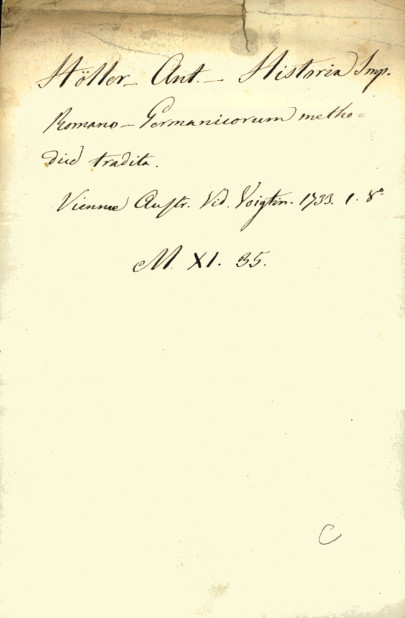 Höller_ Ant._ Historia Imp.
Romano_Germanicorum metho=
dicè tradita.
Viennae Austr. Vid. Voigtin. 1733. 1. 8°
M. XI. 35.
C